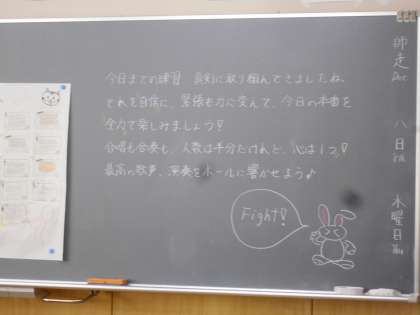 今日までの練習 真剣に取り組んできましたね。
それを自信に、緊張も力に変えて、今日の本番を
全力で楽しみましょう!
合唱も合奏も、人数は半分だけれど、心は1つ!
最高の歌声、演奏をホールに響かせよう♪
Fight!
師走
Dec
八日
8th
木曜日
Thu